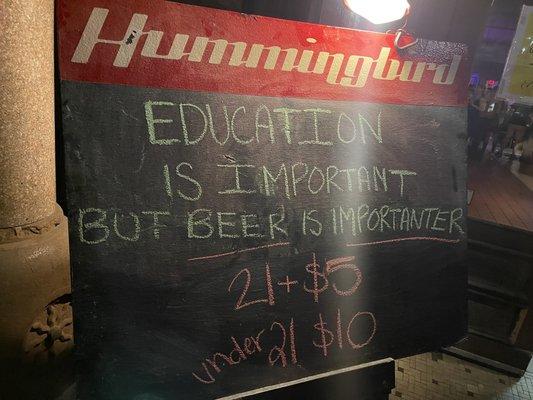 Hummingbird
EDUCATION
IS IMPORTANT
BUT BEER IS IMPORTANTER
21+ $5
under 21 $10